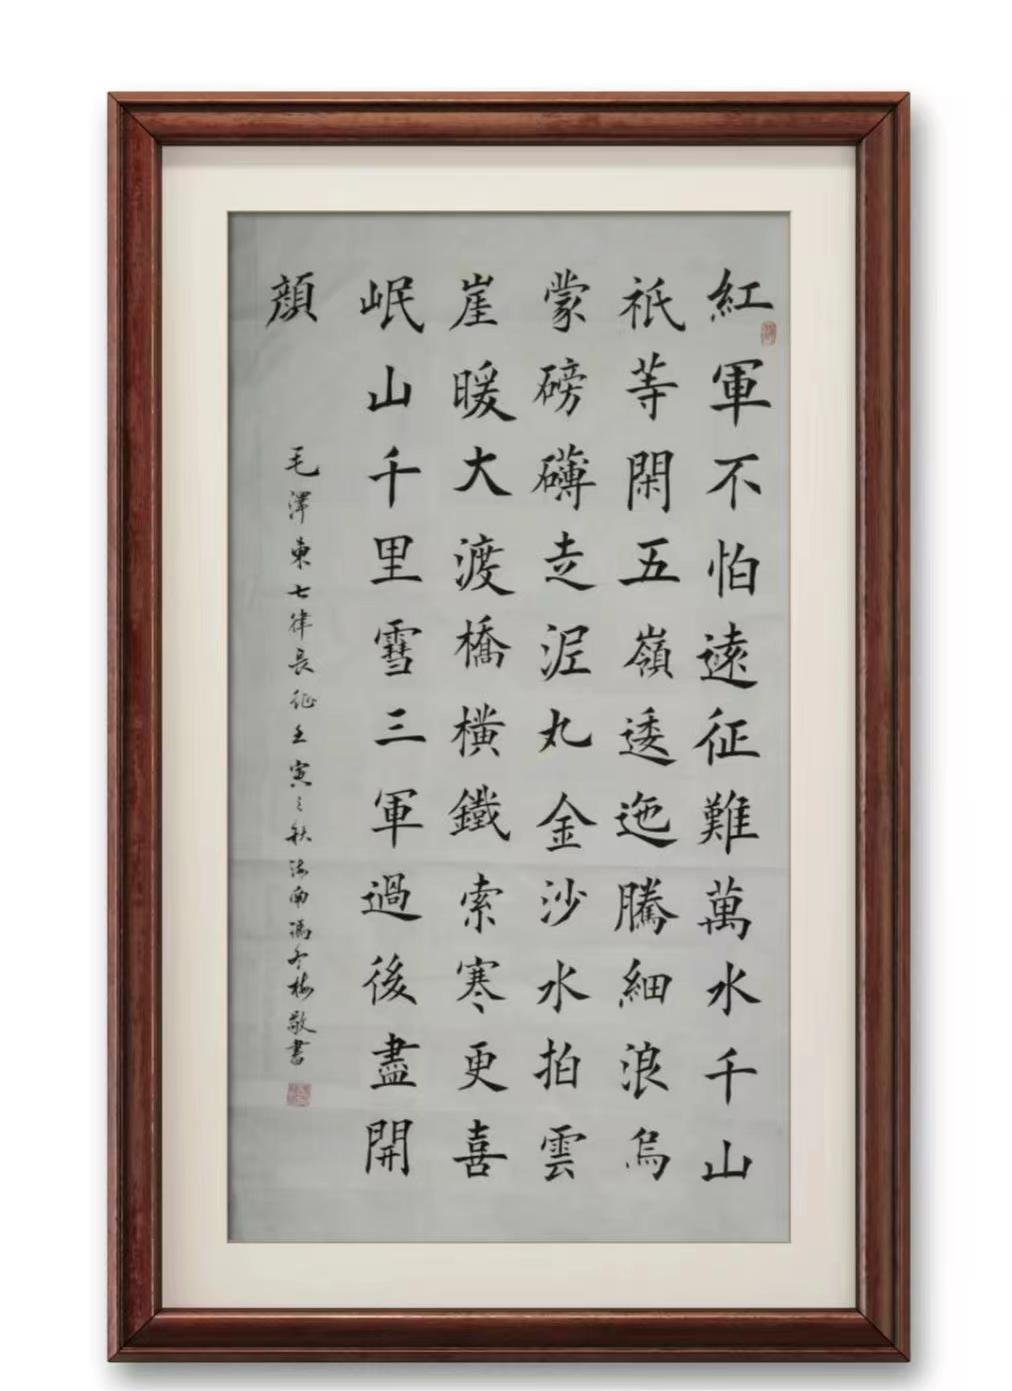 紅軍不怕遠征難萬水千山
祇等閑五嶺逶迤騰細浪烏
蒙磅礴走泥丸金沙水拍雲
崖暖大渡橋橫鐵索寒更喜
岷山千里雪三軍過後盡開
顏
毛澤東七律長征壬寅之秋海南馮冬梅敬書